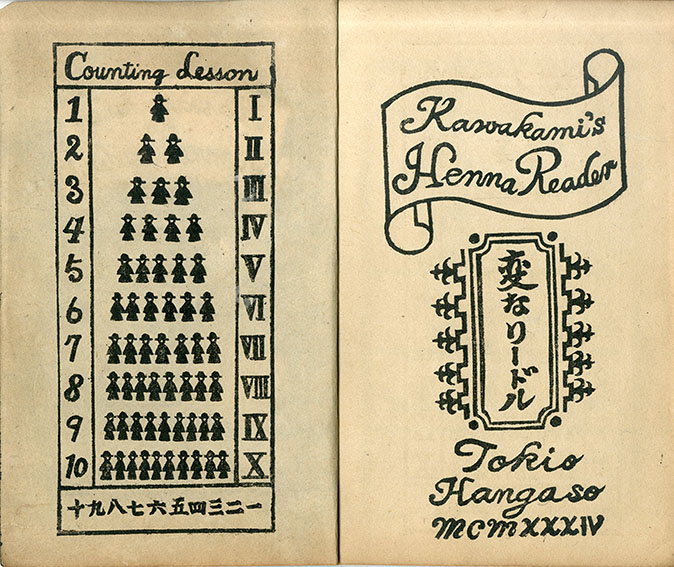 Counting Lesson
1 I
2 II
3 III
4 IV
5 V
6 VI
7 VII
8 VIII
9 IX
10 X
十九八七六五四三二一
Kawakami's
Henna Reader
変なリードル
Tokio
Hangaso
MCMXXXIV